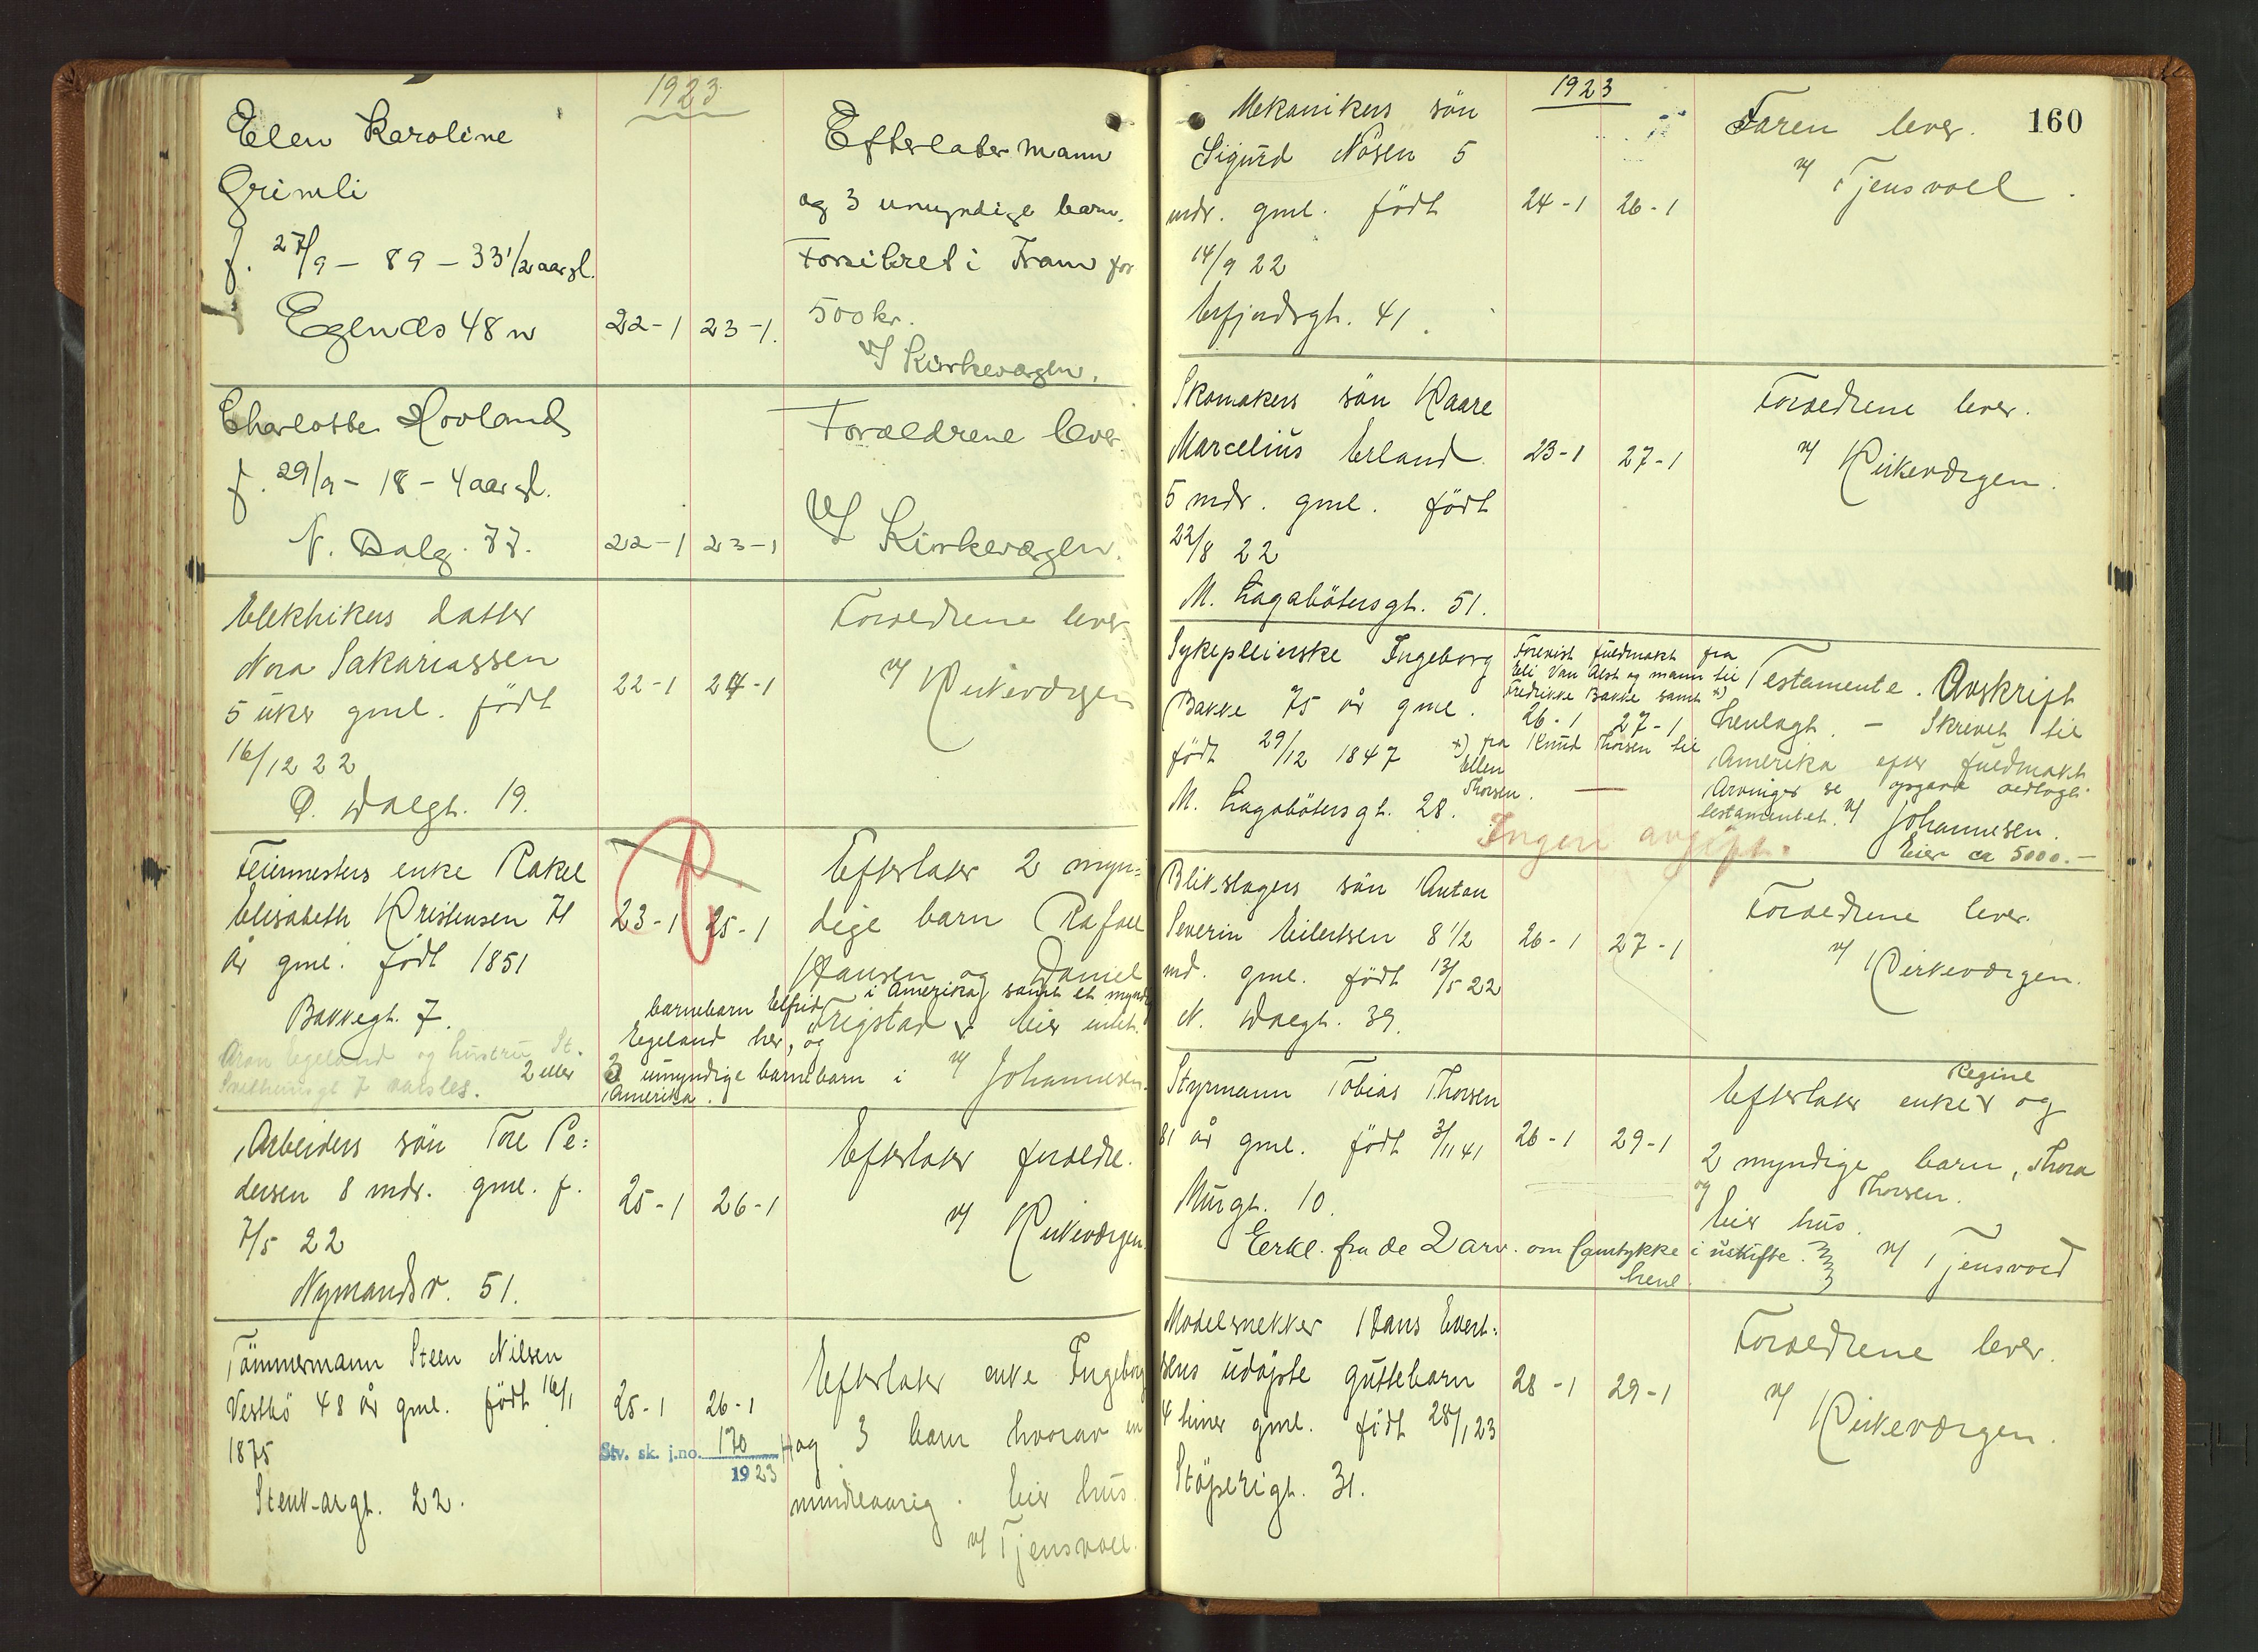 1923
Elen Karoline
Grimli
f. 27/9 - 89 - 33 1/2 aar gl.
Egenæs 48 n
22-1 23-1.
Efterlater mann
og 3 umyndige barn.
Forsikret i Fram for
500 kr.
v/ Kirkeværgen.
Charlotte Hovland
f. 29/9 - 18 - 4 aar gl.
N. Dalg. 77.
22-1 23-1
Forældrene lever
v/ Kirkeværgen.
Elektrikers datter
Nora Sakariassen
5 uker gml. født
16/12 22
Ø. Dalgt. 19.
22-1 24-1
Forældrene lever
v/ Kirkeværgen
Feiermesters enke Rakel
Elisabeth Kristensen 71
år gml. født 1851
Bakkegt. 7.
Aron Egeland og hustru St.
gt 7 varsles.
23-1 25-1
Efterlater 2 myn-
dige barn Rafael
Hansen og Daniel
i Amerika, samt et myndig
barnebarn Elfrid
Trigstad Eier intet.
Egeland her, og
2 eller 3 umyndige barnebarn i
Amerika.
v/ Johannesen.
Arbeiders søn Tore Pe-
dersen 8 mdr. gml. f.
7/5 22
Nymandsv. 51.
25-1 26-1
Efterlater forældre.
v/ Kirkeværgen.
Tømmermann Steen Nilsen
Vestbø 48 år gml. født 16/1
1875
Stenk-argt. 22.
25-1 26-1
Stv. sk. j.no. 170
1923
Efterlater enke Ingeborg
og 3 barn hvorav en
mindreaarig. Eier hus.
v/ Tjensvoll.
160
1923
Mekanikers søn
Sigurd Nåsen 5
mdr. gml. født
14/9 22
Erfjordsgt. 41.
24-1 26-1
Faren lever.
v/ Tjensvoll.
Skomakers søn Kaare
Marcelius Erland
5 mdr. gml. født
22/8 22
M. Lagabøtersgt. 51.
23-1 27-1
Forældrene lever.
v/ Kirkeværgen.
Sykepleierske Ingeborg
Bakke 75 år gml.
født 29/12 1847
M. Lagabøtersgt. 28.
Forevist fuldmakt fra
Eli Van Alst og mann til
Fredrikke Bakke samt x)
26-1 27-1
x) fra Knud Thorsen til
Ellen
Thorsen.
Testamente. Avskrift
henlagt. - Skrevet til
Amerika efter fuldmakt
Arvinger se opgave vedlagt
testamentet. v/ Johannesen.
Eier ca 5000.-
Ingen avgift.
Blikslagers søn Anton
Severin Eilertsen 8 1/2
md. gml. født 13/5 22
N. Dalgt. 39.
26-1 27-1
Forældrene lever.
v/ Kirkeværgen.
Styrmann Tobias Thorsen
81 år gml. født 3/11 41
Murgt. 10.
26-1 29-1
Regine
Efterlater enke og
2 myndige barn, Thora
og Thorsen.
Eier hus.
v/ Tjensvold
Erkl. fra de 2 arv. om samtykke i uskifte.
henl.
Modelsnekker Hans Evert-
sens udøpte guttebarn
4 timer gml. født 28/1 23
Støperigt. 31.
28-1 29-1
Forældrene lever.
v/ Kirkeværgen.